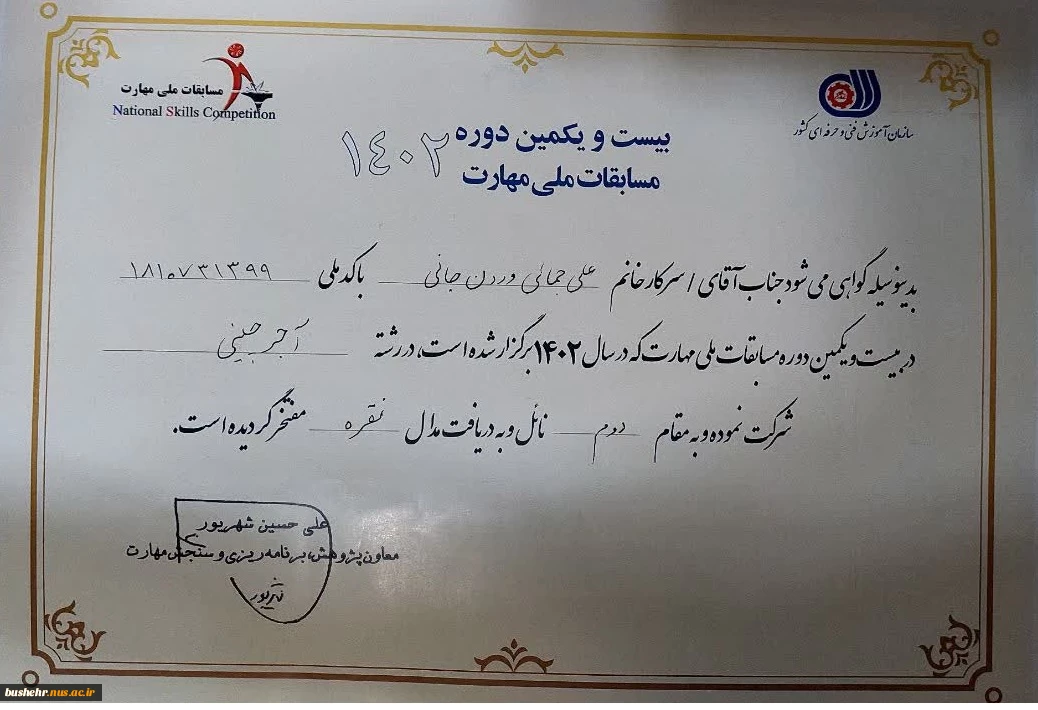 مسابقات ملی مهارت
National Skills Competition
سازمان آموزش فنی و حرفه ای کشور
بیست و یکمین دوره ۱۴۰۲
مسابقات ملی مهارت
بدینوسیله گواهی می شود جناب آقای / سرکار خانم علی جمالی وردن جانی با کد ملی ۱۸۱۰۷۳۱۳۹۹
در بیست و یکمین دوره مسابقات ملی مهارت که در سال ۱۴۰۲ برگزار شده است، در رشته آجر چینی
شرکت نموده و به مقام دوم نائل و به دریافت مدال نقره مفتخر گردیده است.
علی حسین شهریور
معاون پژوهش، برنامه ریزی و سنجش مهارت
bushehr.nus.ac.ir